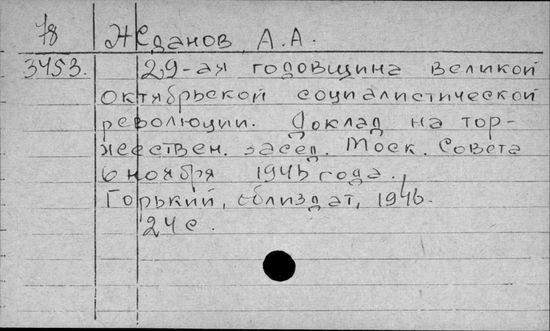 78 Жданов А.А.
3453. 29-ая годовщина великой
октябрьской социалистической
революции. Доклад на тор-
жествен. засед. Моск. Совета
6 ноября 1946 года.,
Горький, облиздат, 1946.
24 с.